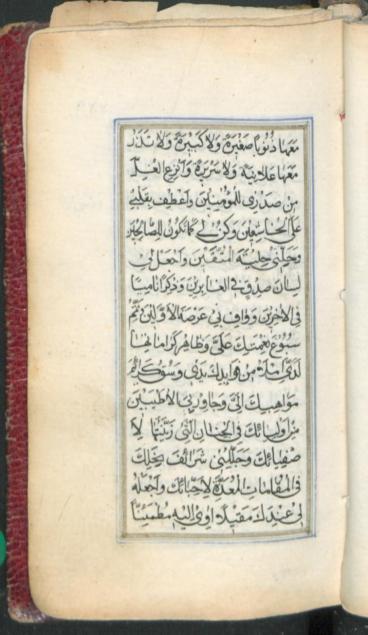 معها ذنوبا صغيرة ولا كبيرة ولا تذر
معها علانية ولا سريرة وانزع الغل
من صدري للمؤمنين واعطف بقلبي
على الخاشعين وكن لي كما تكون للصالحين
وحلني حلية المتقين واجعل لي
لسان صدق في الغابرين وذكرا ناميا
في الآخرين وواف بي عرصة الأولين وتمم
سبوغ نعمتك علي وظاهر كراماتها
لدي املأ من فوائدك يدي وسق كرائم
مواهبك الي وجاور بي الأطيبين
من اوليائك في الجنان التي زينتها لا
صفيائك وجللني شرائف نحلك
في المقامات المعدة لاحبائك واجعل
لي عندك مقيلا اوي اليه مطمئنا